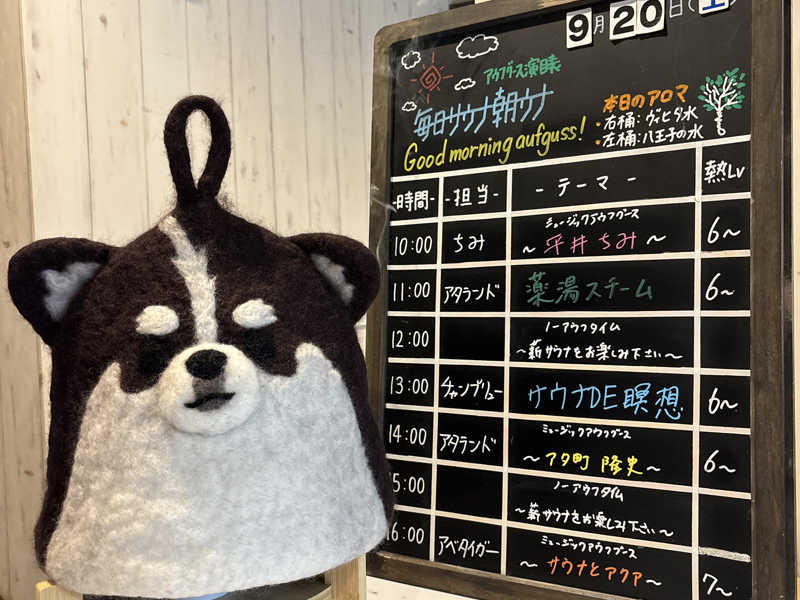 9月20日(土)
アウフグース演目表
毎日サウナ朝ウナ
Good morning aufguss!
本日のアロマ
・右桶:ヴィヒタ水
・左桶:八王子の水
-時間- -担当- -テーマ- 熱Lv
10:00 ちみ ミュージックアウフグース
~平井ちみ~ 6~
11:00 アタランド 薬湯スチーム 6~
12:00 ノーアウフタイム
~薪サウナをお楽しみ下さい~
13:00 チャンブリュー サウナDE瞑想 6~
14:00 アタランド ミュージックアウフグース
~アタ町 隆史~ 6~
15:00 ノーアウフタイム
~薪サウナをお楽しみ下さい~
16:00 アベタイガー ミュージックアウフグース
~サウナとアクア~ 7~